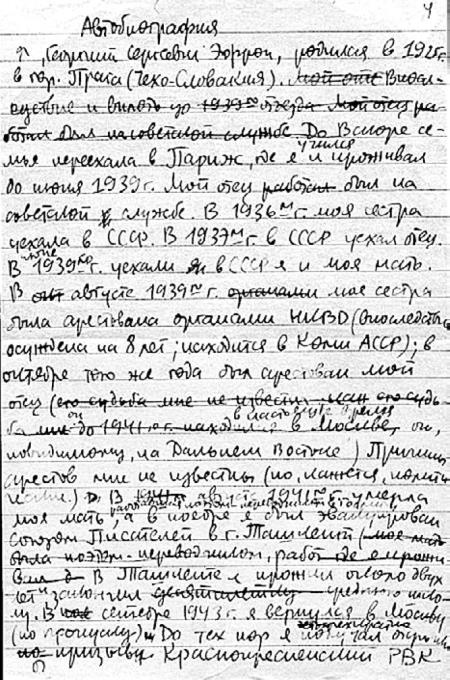 4
Автобиография
Я, Георгий Сергеевич Эфрон, родился в 1925 г.
в гор. Прага (Чехо-Словакия). Мой оте Впосл-
едствие и вплоть до 1939го отъезда Мой отец ра-
ботал был на советской службе До Вскоре се-
мья переехала в Париж, где я учился и проживал
до июня 1939 г. Мой отец работал был на
советской службе. В 1936м г. моя сестра
уехала в СССР. В 1937м г. в СССР уехал отец.
В июне 1939 г. уехали в СССР я и моя мать.
В августе 1939 г. органами моя сестра
была арестована органами НКВД (впоследствии
осуждена на 8 лет; находится в Коми АССР); в
октябре того же года был арестован мой
отец (его судьба мне не известна
он в настоящее время
до 1941го г. находился в Москве, он,
повидимому, на Дальнем Востоке) Причины
арестов мне не известны (но, кажется, полити-
ческие.) В августе 1941го г. умерла
моя мать, а в ноябре я был эвакуирован
Союзом Писателей в г. Ташкент (моя мать
была поэтом-переводчиком, где я прожи-
В Ташкенте я прожил около двух
лет и закончил десятилетку среднюю шко-
лу. В сентябре 1943 г. я вернулся в Москву
(по пропуску) До тех пор я получал отсроч
по призыву Краснопресненский РВК